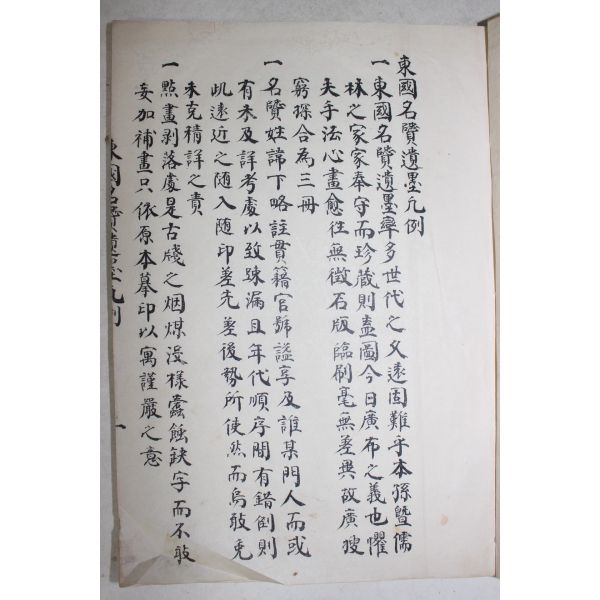 東國名贒遺墨凡例
一 東國名贒遺墨率多世代之久遠固難乎本孫曁儒
林之家家奉守而珍蔵則盍圖今日廣布之義也懼
夫手法心畫愈往無徵石版臨刷毫無差爽故廣搜
窮探合為三冊
一 名贒姓諱下略註貫籍官號謚享及誰某門人而或
有未及詳考處以致踈漏且年代順序間有錯倒則
此遠近之随入随印差先差後勢所使然而烏敢免
未克精詳之責
一 點畫剥落處是古牋之烟煤漫樣蠹蝕缺字而不敢
妄加補畫只依原本摹印以寓謹嚴之意
東國名贒遺墨凡例
一